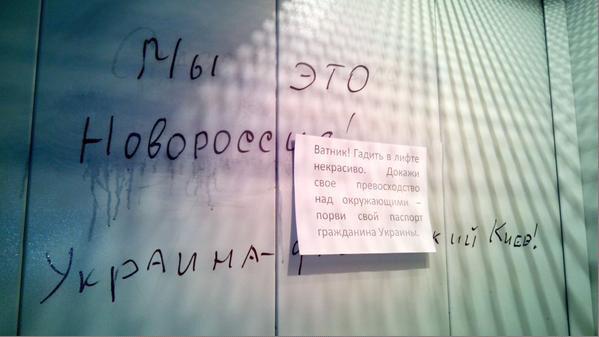 Мы это
Новороссия!
Ватник! Гадить в лифте
некрасиво. Докажи
свое превосходство
над окружающими –
порви свой паспорт
гражданина Украины.
Украина-
кий Киев!